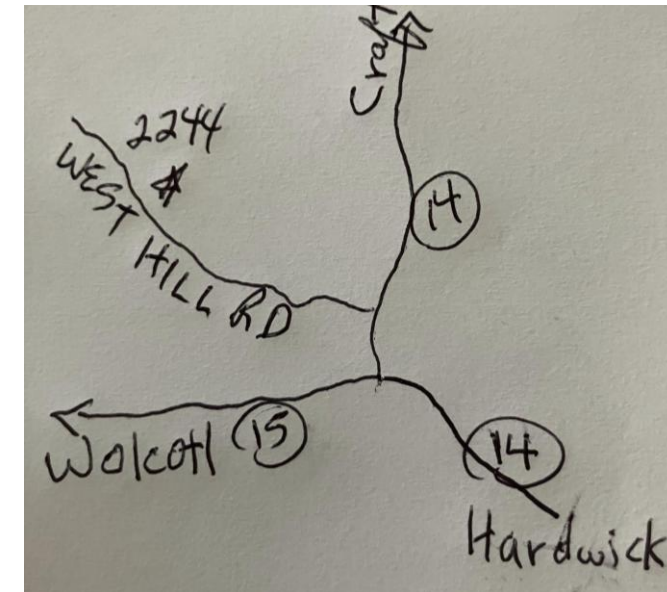 2244
WEST HILL RD
14
Wolcott
15
14
Hardwick